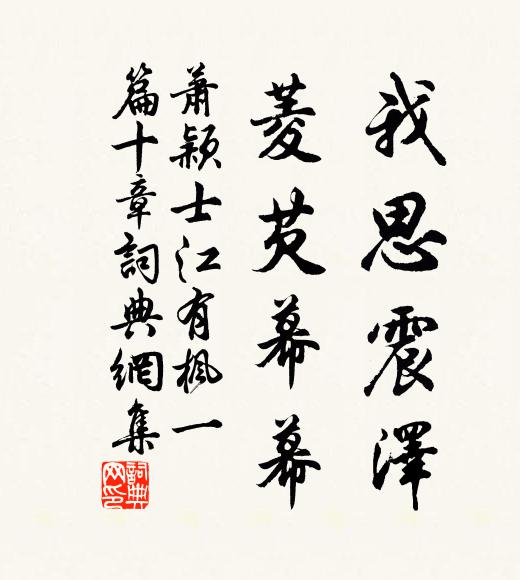 我思震澤
菱芡幕幕
蕭穎士江有楓一
篇十章詞典網集
詞典网印